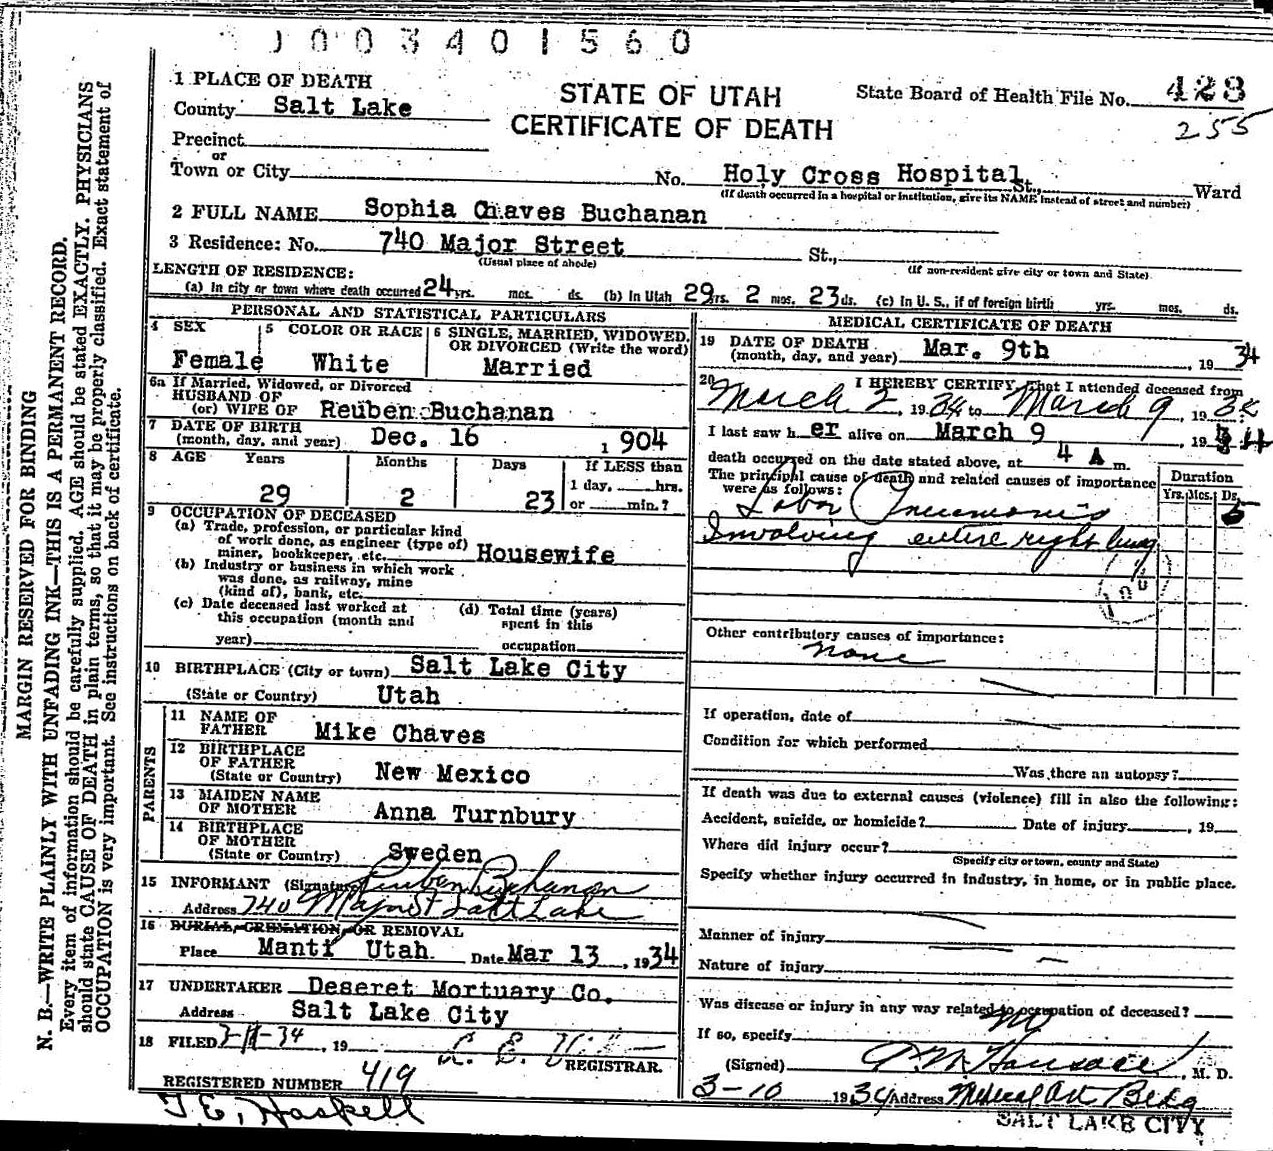 1003401560
1 PLACE OF DEATH
County Salt Lake
STATE OF UTAH
CERTIFICATE OF DEATH
State Board of Health File No. 428
255
Precinct
or
Town or City No. Holy Cross Hospital St., Ward
(If death occurred in a hospital or institution, give its NAME instead of street and number)
2 FULL NAME Sophia Chaves Buchanan
3 Residence: No. 740 Major Street St.,
(Usual place of abode) (If non-resident give city or town and State)
LENGTH OF RESIDENCE:
(a) In city or town where death occurred 24 yrs. mos. ds. (b) In Utah 29 yrs. 2 mos. 23 ds. (c) In U. S., if of foreign birth yrs. mos. ds.
PERSONAL AND STATISTICAL PARTICULARS
4 SEX
Female
5 COLOR OR RACE
White
6 SINGLE, MARRIED, WIDOWED,
OR DIVORCED (Write the word)
Married
6a If Married, Widowed, or Divorced
HUSBAND OF
(or) WIFE OF Reuben Buchanan
7 DATE OF BIRTH
(month, day, and year) Dec. 16 1904
8 AGE Years Months Days If LESS than
1 day, hrs.
29 2 23 or min.?
9 OCCUPATION OF DECEASED
(a) Trade, profession, or particular kind
of work done, as engineer (type of)
miner, bookkeeper, etc. Housewife
(b) Industry or business in which work
was done, as railway, mine
(kind of), bank, etc.
(c) Date deceased last worked at
this occupation (month and
year)
(d) Total time (years)
spent in this
occupation
10 BIRTHPLACE (City or town) Salt Lake City
(State or Country) Utah
PARENTS
11 NAME OF
FATHER Mike Chaves
12 BIRTHPLACE
OF FATHER
(State or Country) New Mexico
13 MAIDEN NAME
OF MOTHER Anna Turnbury
14 BIRTHPLACE
OF MOTHER
(State or Country) Sweden
15 INFORMANT (Signature) Reuben Buchanan
Address 740 Major St Salt Lake
16 BURIAL, CREMATION, OR REMOVAL
Place Manti Utah. Date Mar 13, 1934
17 UNDERTAKER Deseret Mortuary Co.
Address Salt Lake City
18 FILED 3-11-34, 19
REGISTRAR.
REGISTERED NUMBER 419
T. E. Haskell
MEDICAL CERTIFICATE OF DEATH
19 DATE OF DEATH
(month, day, and year) Mar. 9th, 1934
20 I HEREBY CERTIFY, that I attended deceased from
March 2, 1934 to March 9, 1934
I last saw her alive on March 9, 1934
death occurred on the date stated above, at 4 A m.
The principal cause of death and related causes of importance
were as follows:
Duration
Yrs. Mos. Ds.
Lobar Pneumonia 5
Involving entire right lung
108
Other contributory causes of importance:
none
If operation, date of
Condition for which performed
Was there an autopsy?
If death was due to external causes (violence) fill in also the following:
Accident, suicide, or homicide? Date of injury, 19
Where did injury occur?
(Specify city or town, county and State)
Specify whether injury occurred in industry, in home, or in public place.
Manner of injury
Nature of injury
Was disease or injury in any way related to occupation of deceased?
no
If so, specify
(Signed) , M. D.
3-10 1934 Address Medical Art Bldg
SALT LAKE CITY
MARGIN RESERVED FOR BINDING
N. B.—WRITE PLAINLY WITH UNFADING INK—THIS IS A PERMANENT RECORD.
Every item of information should be carefully supplied. AGE should be stated EXACTLY. PHYSICIANS
should state CAUSE OF DEATH in plain terms, so that it may be properly classified. Exact statement of
OCCUPATION is very important. See instructions on back of certificate.